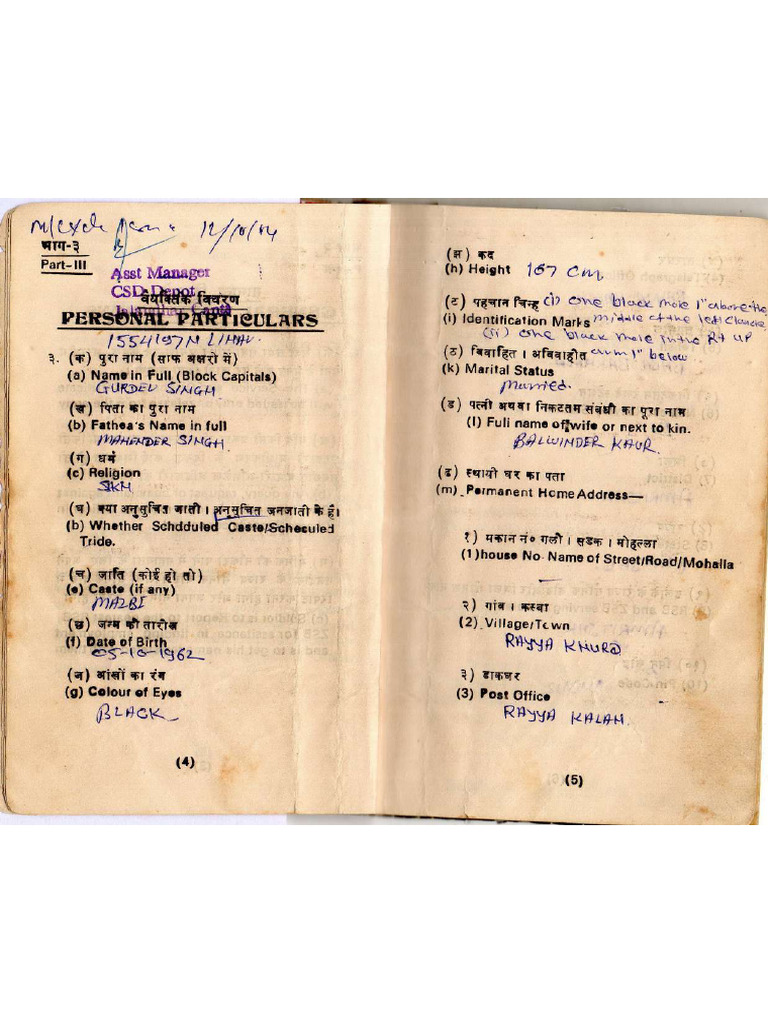 12/10/14
भाग-३
Part-III
Asst Manager
CSD Depot
वैयक्तिक विवरण
PERSONAL PARTICULARS
३. (क) पुरा नाम (साफ अक्षरो में)
(a) Name in Full (Block Capitals)
GURDEV SINGH
(ख) पिता का पुरा नाम
(b) Fathea's Name in full
MAHENDER SINGH
(ग) धर्म
(c) Religion
SKH
(घ) क्या अनुसुचित जाती । अनुसुचित जनजाती के हैं।
(b) Whether Schdduled Caste/Scheculed
Tride.
(च) जाति (कोई हो तो)
(e) Caste (if any)
MAZBI
(छ) जन्म की तारीख
(f) Date of Birth
05-10-1962
(ज) आंखों का रंग
(g) Colour of Eyes
BLACK
(4)
(झ) कद
(h) Height 167 cm
(ट) पहचान चिन्ह (i) one black mole 1" above the
(i) Identification Marks middle of the left
(ii) one black mole in the Rt UP
(ठ) विवाहित । अविवाहीत arm 1" below
(k) Marital Status
Married.
(ड) पत्नी अथवा निकटतम संबंधी का पूरा नाम
(l) Full name of wife or next to kin.
BALWINDER KAUR.
(ढ) स्थायी घर का पता
(m) Permanent Home Address—
१) मकान नं० गली । सडक । मोहुल्ला
(1) house No. Name of Street/Road/Mohalla
—
२) गांव । कस्बा
(2) Village/Town
RAYYA KHURD
३) डाकघर
(3) Post Office
RAYYA KALAN.
(5)